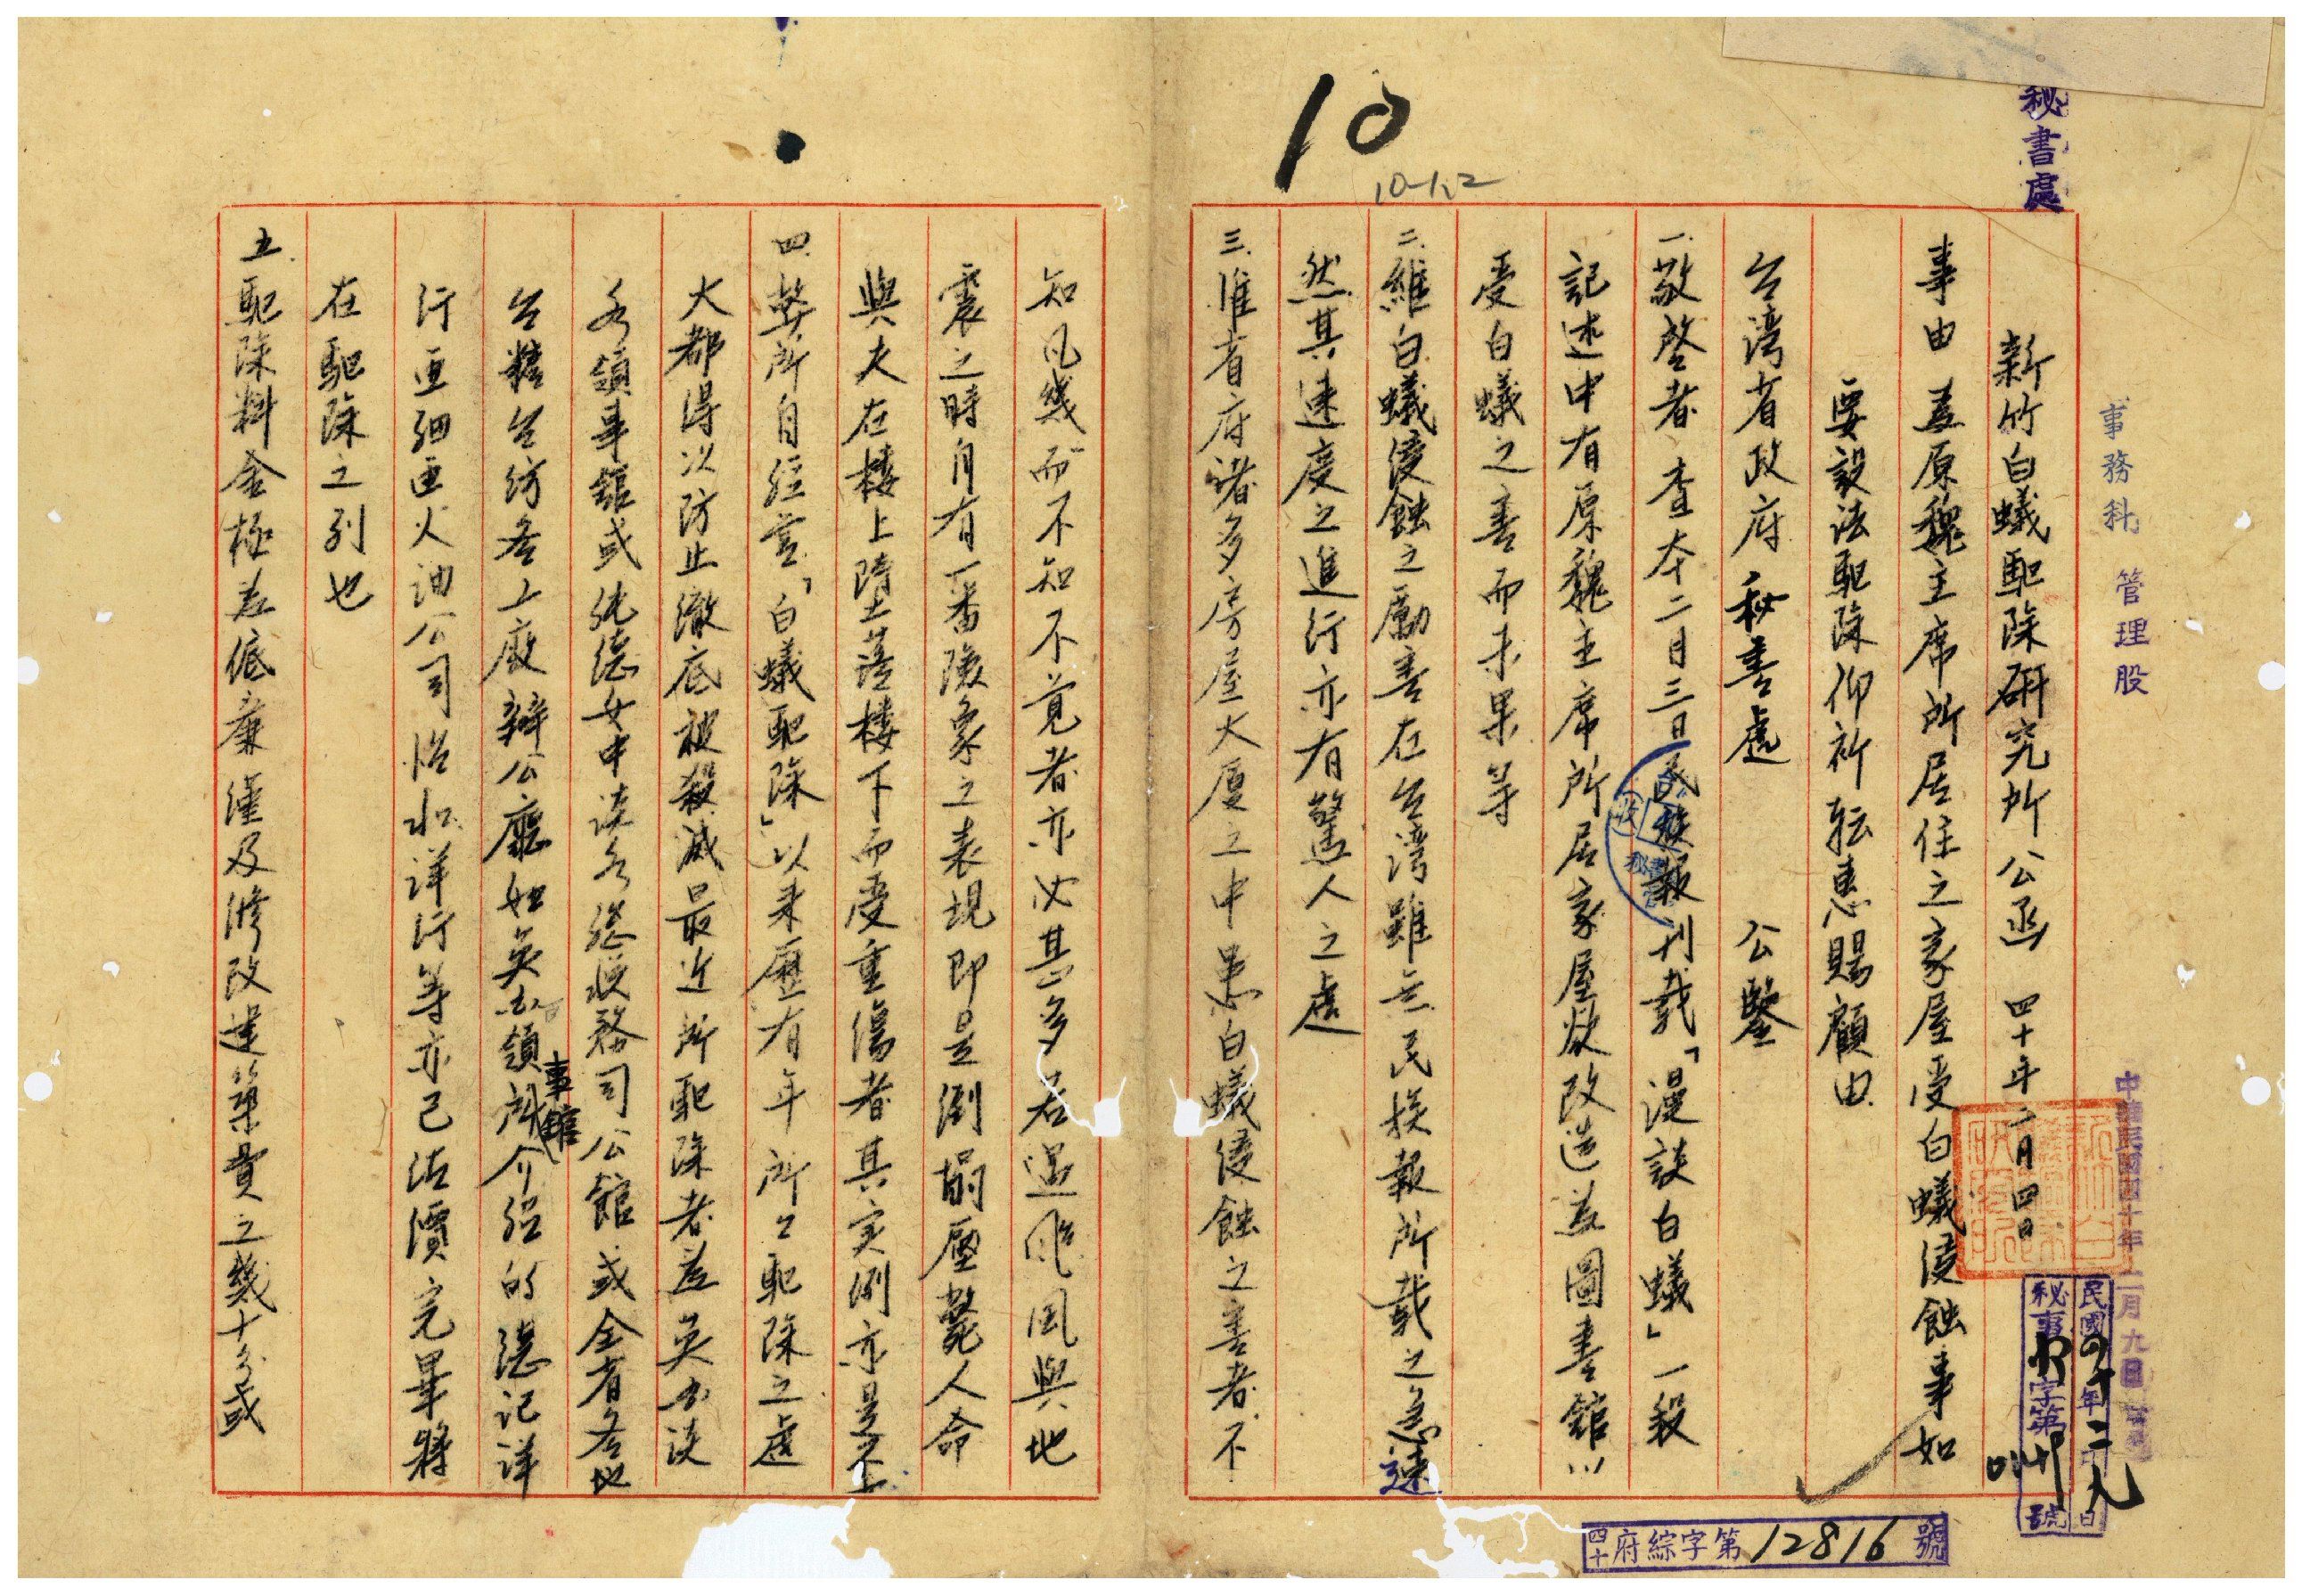 秘書處
事務科 管理股
10
10-1,2
新竹白蟻駆除研究所公函 四十年二月四日
事由 為原魏主席所居住之家屋受白蟻侵蝕事如
要設法駆除仰祈転惠賜顧由
台湾省政府秘書處 公鑒
一.敬啓者 查本二月三日民族報刊載「漫談白蟻」一段
記述中有原魏主席所居家屋欲改造為圖書館以
受白蟻之害而未果等
二.維白蟻侵蝕之勵害在台湾雖無民族報所載之急速
然其速度之進行亦有驚人之處
三.惟省府諸多房屋大厦之中患白蟻侵蝕之害者不
知凡幾而不知不覚者亦必甚多若遇颱風與地
震之時自有一番険象之表現即是倒塌壓斃人命
與夫在楼上墮落楼下而受重傷者其実例亦是不上
四.弊所自経営「白蟻駆除」以来歷有年所之駆除之處
大都得以防止徹底被殺滅最近所駆除者為英办淡
水領事舘或純德女中淡水総税務司公館或全省各地
台糖台紡各工廠辦公廳如英办領事館介紹的德记洋
行亜细亜火油公司怡和洋行等亦已估價完畢将
在駆除之列也
五.駆除料金極為低廉僅及修改建築費之幾十分或
中華民國四十年二月九日
民國四十年二月九日
秘事 字第 號
四十府綜字第12816號